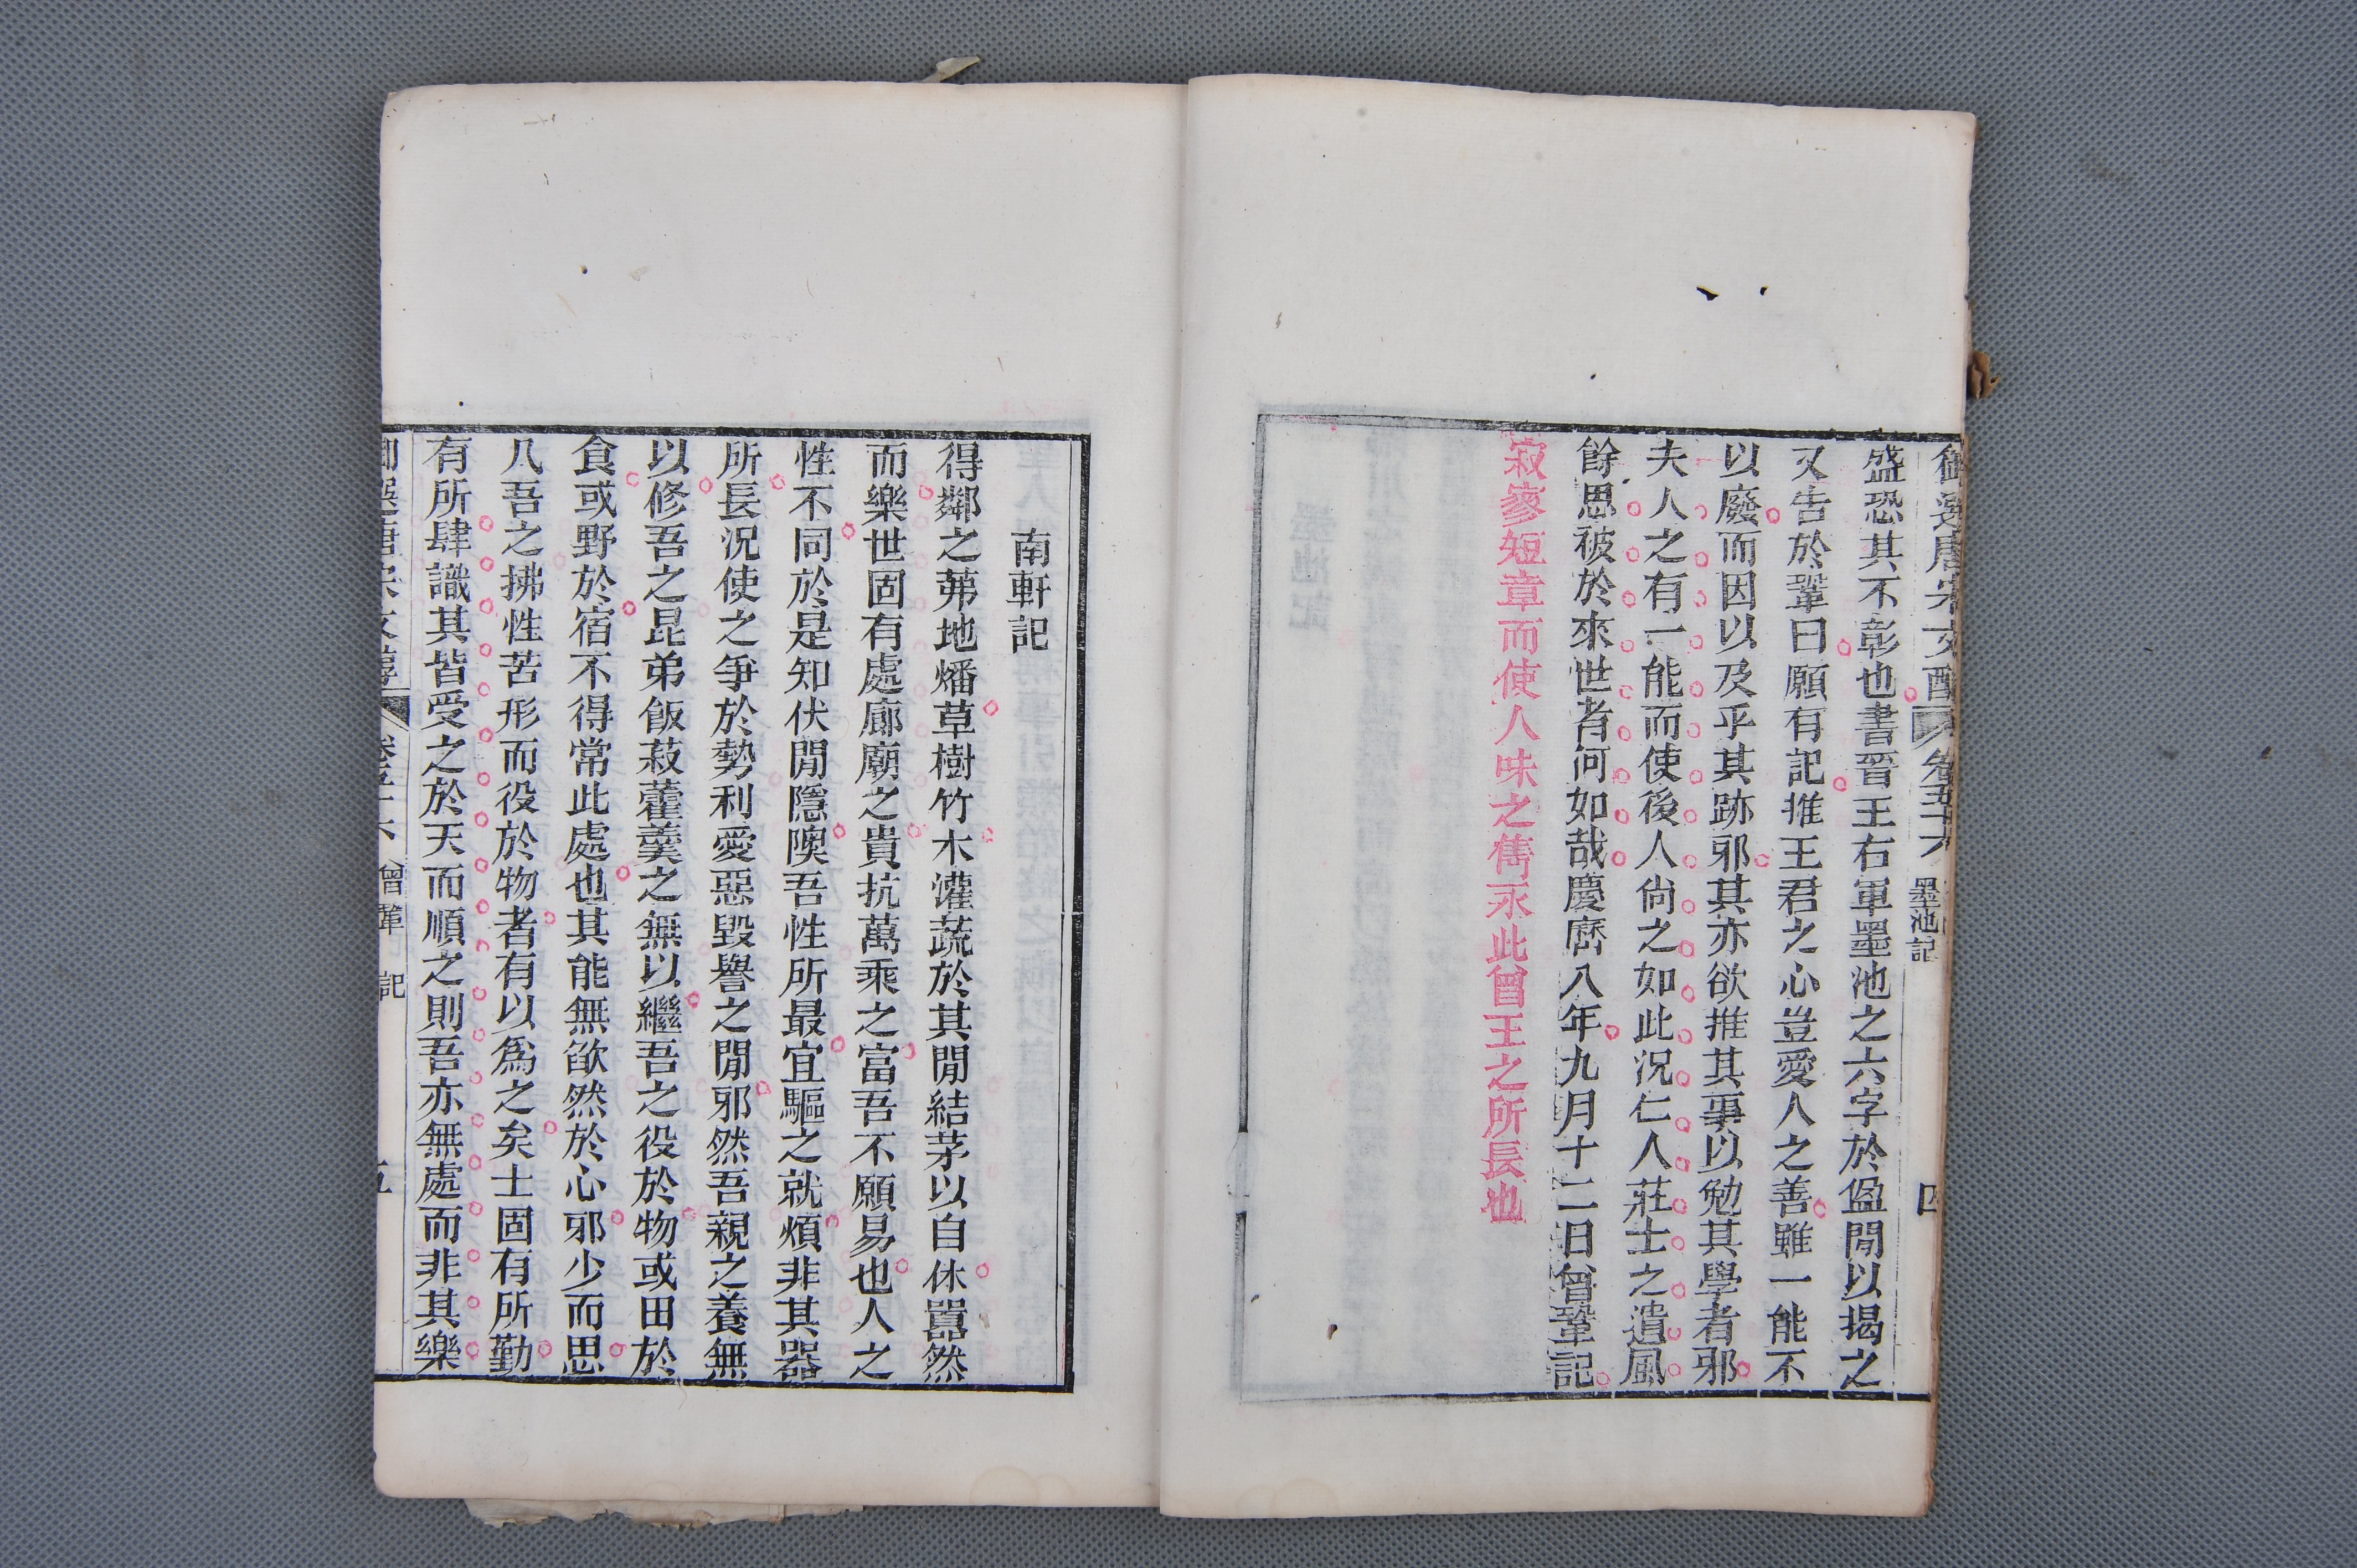 御選唐宋文醇 卷五十六 墨池記 四
盛恐其不彰也書晉王右軍墨池之六字於楹閒以揭之
又告於鞏曰願有記推王君之心豈愛人之善雖一能不
以廢而因以及乎其跡邪其亦欲推其事以勉其學者邪
夫人之有一能而使後人尙之如此況仁人莊士之遺風
餘思被於來世者何如哉慶厯八年九月十二日曾鞏記
寂寥短章而使人味之雋永此曾王之所長也
南軒記
得鄰之茀地燔草樹竹木灌蔬於其閒結茅以自休囂然
而樂世固有處廊廟之貴抗萬乘之富吾不願易也人之
性不同於是知伏閒隱隩吾性所最宜驅之就煩非其器
所長況使之爭於勢利愛惡毀譽之閒邪然吾親之養無
以修吾之昆弟飯菽藿羹之無以繼吾之役於物或田於
食或野於宿不得常此處也其能無欿然於心邪少而思
凡吾之拂性苦形而役於物者有以爲之矣士固有所勤
有所肆識其皆受之於天而順之則吾亦無處而非其樂
御選唐宋文醇 卷五十六 曾鞏 記 五